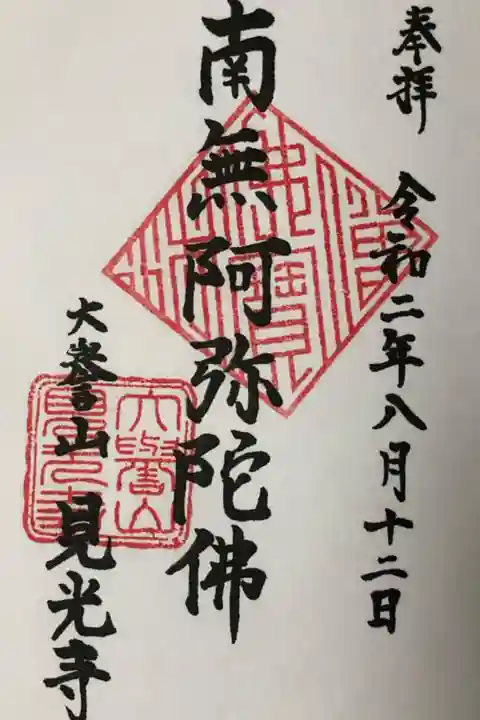 奉拝 令和二年八月十二日
南無阿弥陀佛
大誉山 見光寺
佛法僧寳
大譽山見光寺